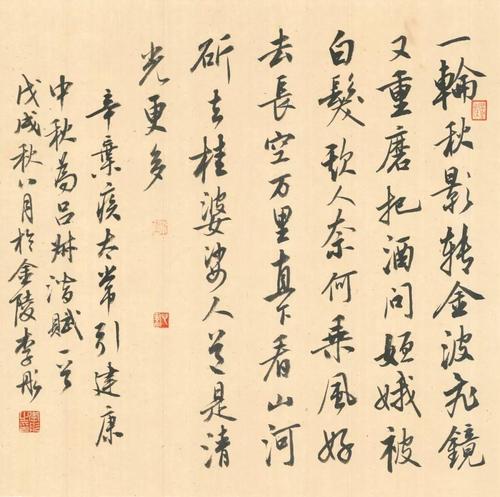 一輪秋影转金波飛鏡
又重磨把酒问姮娥被
白髮欺人奈何乘風好
去長空万里直下看山河
斫去桂婆娑人道是清
光更多
辛棄疾太常引建康
中秋為吕叔潜賦一首
戊戌秋八月於金陵李彤